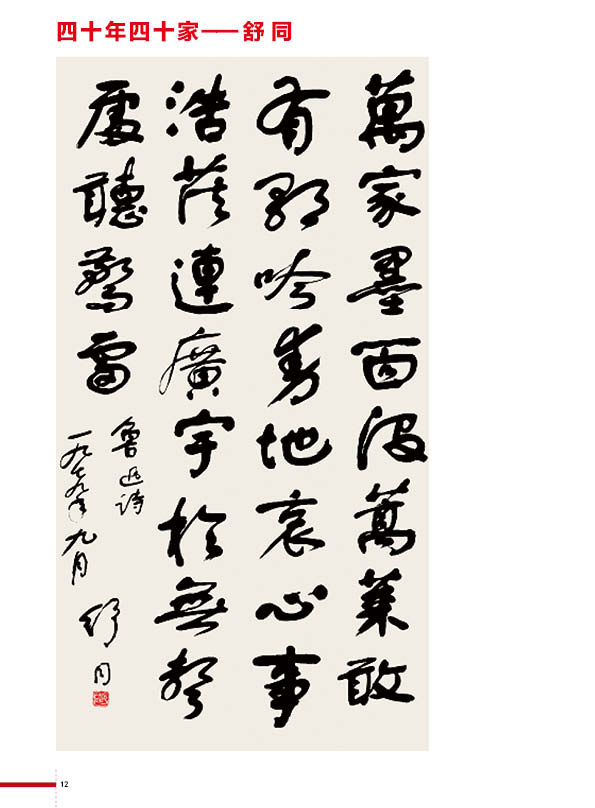 四十年四十家——舒同
萬家墨面没蒿萊敢
有歌吟動地哀心事
浩茫連廣宇於無聲
處聽驚雷
魯迅詩
一九七九年九月
舒同
12